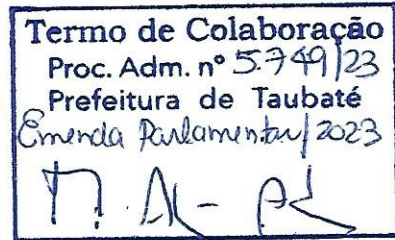 Termo de Colaboração
Proc. Adm. nº 5.749/23
Prefeitura de Taubaté
Emenda Parlamentar/2023